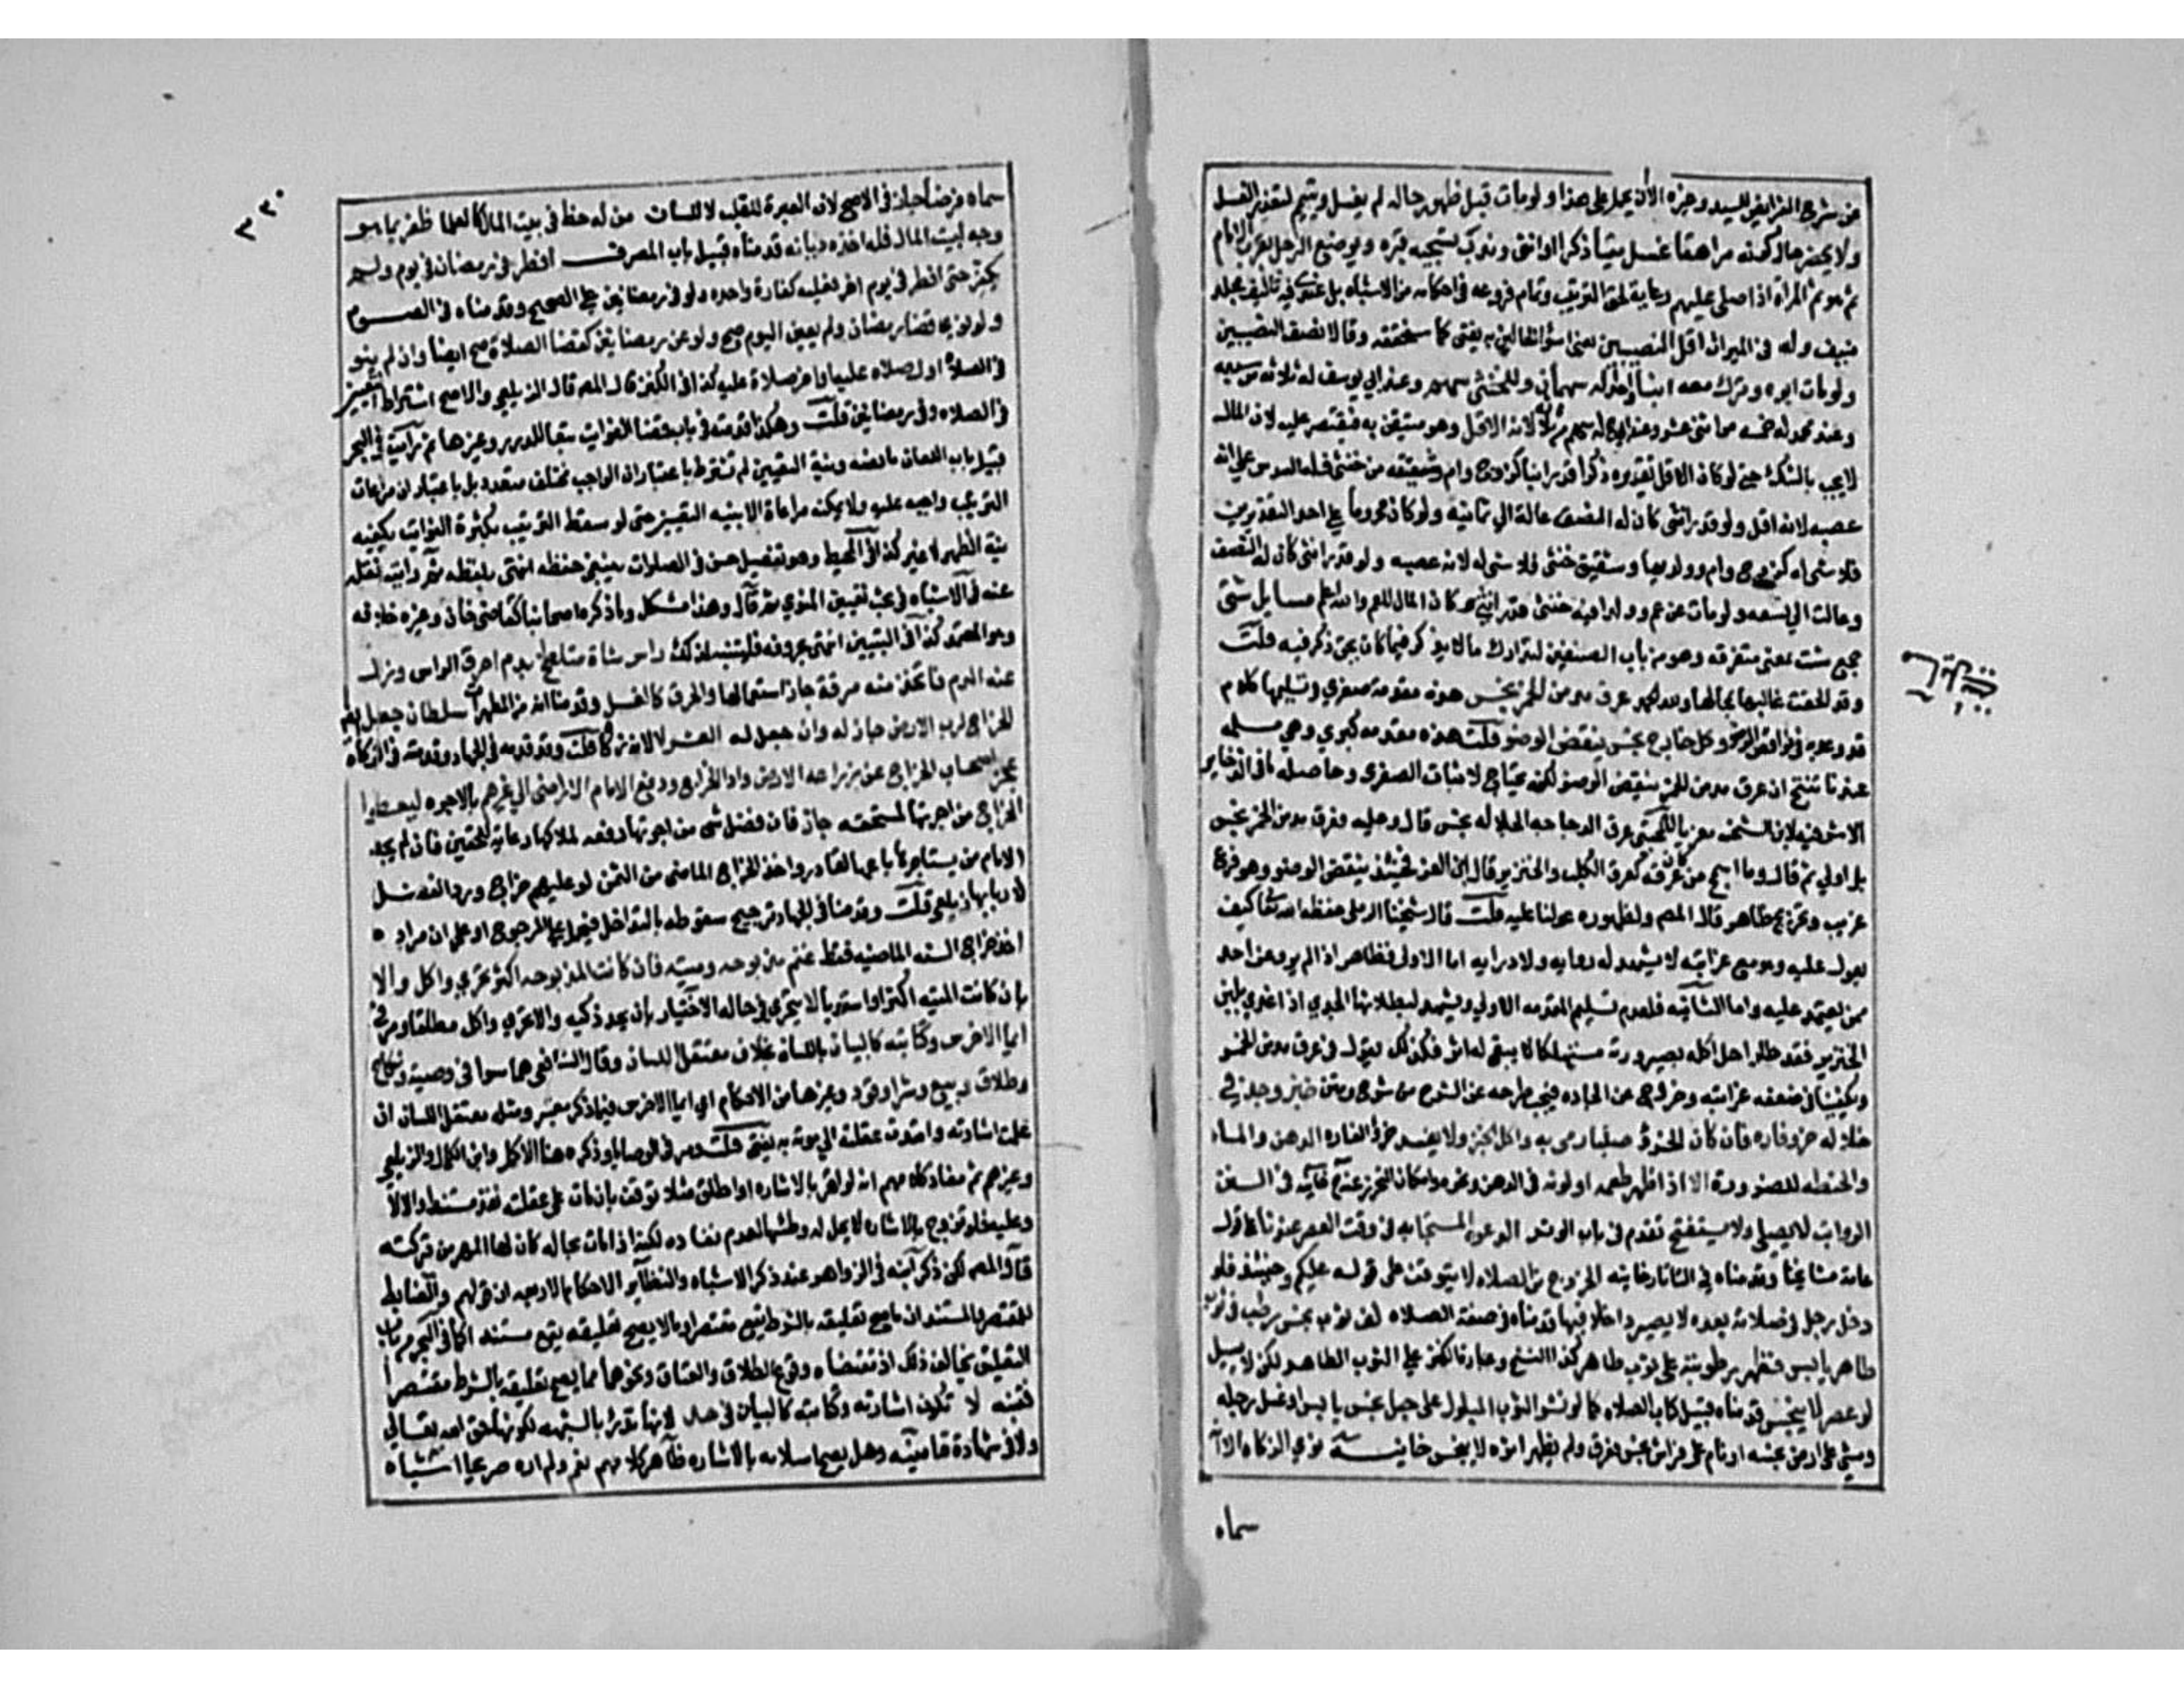 عن شرح الفرايض للسيد وغيره الا ان يحمل على هذا ولو مات قبل ظهور حاله لم يغسل وييمم لتعذر الغسل
ولا يحضر حال كونه مراهقا غسل ميتا ذكرا او انثى وندب تسجية قبره ويوضع الرجل بقرب الامام
ثم هو ثم المراة اذا صلى عليهم رعاية لحق الترتيب وتمام فروعه في احكامه من الاشباه بل عندي فيه تاليف مجلد
منيف وله في الميراث اقل النصيبين يعني اسوا الحالين به يفتى كما سنحققه وقالا نصف النصيبين
ولو مات ابوه وترك معه ابنا واحدا له سهمان وللخنثى سهم وعند ابي يوسف له ثلاثة من سبعة
وعند محمد له خمسة من اثني عشر وعند ابي ح له سهم من ثلاثة لانه الاقل وهو متيقن به فيقتصر عليه لان المال
لا يجب بالشك حتى لو كان الاقل تقديره ذكرا قدر ابنا كزوج وام وشقيقة هي خنثى فله السدس على انه
عصبة لانه اقل ولو قدر انثى كان له النصف عالة الى ثمانية ولو كان محروما على احد التقديرين
فلا شي له كزوج وام وولديها وشقيق خنثى فلا شي له لانه عصبة ولو قدر انثى كان له النصف
وعالت الى تسعة ولو مات عن عم وولد اخيه خنثى قدر انثى وكان المال للعم والله اعلم مسايل شتى
جمع شتيت بمعنى متفرقة وهو من باب المصنفين لتدارك ما لم يذكر فيما كان يحق ذكره فيه قلت
وقد الحقت غالبها بمحالها ولله الحمد عرق مدمن الخمر نجس هذه مقدمة صغرى وتسليمها كلام
قد وعد به في نواقض الوضو وكل خارج نجس ينقض الوضو قلت هذه مقدمة كبرى وهي مسلمة
عندنا تنتج ان عرق مدمن الخمر ينقض الوضو لكنه يحتاج لاثبات الصغرى وحاصله ما في الذخاير
الاشرفية لابن الشحنة معزيا للمجتبى عرق الدجاجة الجلالة نجس قال وعليه فعرق مدمن الخمر نجس
بل اولى ثم قال وما اسمج من كان عرقه كعرق الكلب والخنزير قال ابن العز فحينئذ ينقض الوضو وهو فرع
غريب وتخريج ظاهر قال المص ولظهوره عولنا عليه قلت قال شيخنا الرملي حفظه الله تعالى كيف
يعول عليه وهو مع غرابته لا يشهد له رواية ولا دراية اما الاولى فظاهر اذ لم يرو عن احد
ممن يعتمد عليه واما الثانية فلعدم تسليم المقدمة الاولى ويشهد لبطلانها الجدي اذا غذي بلبن
الخنزير فقد عللوا حل اكله بصيرورته مستهلكا لا يبقى له اثر فكذلك نقول في عرق مدمن الخمر
ويكفينا في ضعفه غرابته وخروجه عن الجادة فيجب طرحه عن السرح من شرح ومتن خبز وجد في
خلاله خرو فارة فان كان الخرو صلبا رمي به واكل الخبز ولا يفسد خرو الفارة الدهن والماء
والحنطة للضرورة الا اذا ظهر طعمه او لونه في الدهن ونحوه لامكان التحرز عنه خانية في السنن
الرواتب لا يصلي ولا يستفتح تقدم في باب الوتر الدعوة المستجابة في وقت العصر عندنا على قول
عامة مشايخنا وقدمناه في التتارخانية الخروج من الصلاة لا يتوقف على قوله عليكم وحينئذ فلو
دخل رجل في صلاته بعده لا يصير داخلا فيها قدمناه في صفة الصلاة لف ثوب نجس رطب في ثوب
طاهر يابس فظهر رطوبته على ثوب طاهر كذا النسخ وعبارة الكنز على الثوب الطاهر لكن لا يسيل
لو عصر لا يتنجس قدمناه قبيل كتاب الصلاة كما لو نشر الثوب المبلول على حبل نجس يابس او غسل رجله
ومشى على ارض نجسة او نام على فراش نجس فعرق ولم يظهر اثره لا ينجس خانية نوى الزكاة الا انه
سماه
سماه قرضا جاز في الاصح لان العبرة للقلب لا للسان من له حظ في بيت المال كالعلما ظفر بما هو
وجه لبيت المال فله اخذه ديانة قدمناه قبيل باب المصرف افطر في رمضان في يوم ولم
يكفر حتى افطر في يوم اخر فعليه كفارة واحدة ولو في رمضانين على الصحيح وقدمناه في الصوم
ولو نوى قضا رمضان ولم يعين اليوم صح ولو عن رمضانين كقضا الصلاة صح ايضا وان لم ينو
في الصلاة اول صلاة عليه او اخر صلاة عليه كذا في الكنز قال المص قال الزيلعي والاصح اشتراط التعيين
في الصلاة وفي رمضانين قلت وهكذا قدمته في باب قضا الفوايت تبعا للدرر وغيرها ثم رايت في البحر
قبيل باب اللعان ما نصه ونية التعيين لم تشترط باعتبار ان الواجب مختلف متعدد بل باعتبار ان مراعات
الترتيب واجبة عليه ولا يمكنه مراعاة الا بنية التعيين حتى لو سقط الترتيب بكثرة الفوايت يكفيه
نية الظهر لا غير كذا في المحيط وهو تفصيل حسن في الصلوات ينبغي حفظه انتهى بلفظه ثم رايته نقله
عنه في الاشباه في بحث تعيين المنوي ثم قال وهذا مشكل وما ذكره اصحابنا كقاضي خان وغيره خلافه
وهو المعتمد كذا في التبيين انتهى بحروفه فليتنبه لذلك راس شاة متلطخ بدم احرق الراس وزال
عنه الدم فاتخذ منه مرقة جاز استعمالها والحرق كالغسل وقدمنا انه من المطهرات سلطان جعل
الخراج لرب الارض جاز له وان جعل له العشر لا لانه زكاة قلت وقد قدمه في الجهاد وقدمته في الزكاة
عجز اصحاب الخراج عن زراعة الارض وادا الخراج ودفع الامام الاراضي الى غيرهم بالاجرة ليعطوا
الخراج من اجرتها لمستحقه جاز فان فضل شي من اجرتها دفعه لملاكها رعاية للحقين فان لم يجد
الامام من يستاجرها باعها لقادر واخذ الخراج الماضي من الثمن لو عليهم خراج ورد الفضل
لاربابها زيلعي قلت وقدمنا في الجهاد ترجيح سقوطه بالتداخل فيحمل على المرجوح او على ان مراده
اخذ خراج السنة الماضية فقط غنم مذبوحة وميتة فان كانت المذبوحة اكثر تحرى واكل والا
بان كانت الميتة اكثر او استويا لا يتحرى في حالة الاختيار بان يجد ذكية والا تحرى واكل مطلقا ومر
ايما الاخرس وكتابته كالبيان باللسان بخلاف معتقل اللسان وقال الشافعي هما سوا في وصية ونكاح
وطلاق وبيع وشرا وقود وغيرها من الاحكام اي ايما الاخرس فيما ذكر معتبر ومثله معتقل اللسان ان
علمت اشارته وامتدت عقلته الى موته به يفتى قلت ومر في الوصايا وذكره هنا الاكمل وابن الكمال والزيلعي
وغيرهم ثم مفاد كلامهم انه لو اقر بالاشارة او طلق مثلا توقف فان مات على عقلته نفذ مستندا والا لا
وعليه فلو تزوج بالاشارة لا يحل له وطئها لعدم نفاده لكنه اذا مات بحاله كان لها المهر من تركته
قاله المص لكن ذكر ابنه في الزواهر عند ذكر الاشباه والنظاير الاحكام الاربعة ان قولهم والضابط
للمقتصر والمستند ان ما صح تعليقه بالشرط يقع مقتصرا وما لا يصح تعليقه يقع مستندا كما في البحر من باب
التعليق يخالف ذلك اذ مقتضاه وقوع الطلاق والعتاق ونحوهما مما يصح تعليقه بالشرط مقتصرا
فتنبه لا تكون اشارته وكتابته كالبيان في حد لانها تدرا بالشبهة لكونها حق الله تعالى
ولا في شهادة قامنية وهل يصح اسلامه بالاشارة ظاهر كلامهم نعم ولم اره صريحا اشباه
٣٣٠